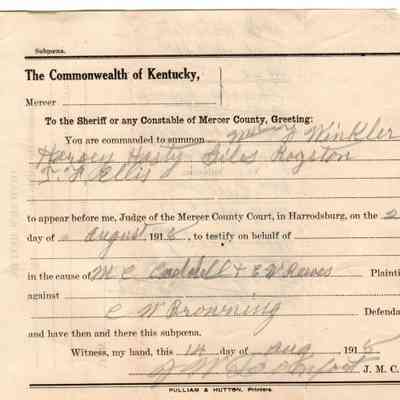 Subpœna.
The Commonwealth of Kentucky,
Mercer
To the Sheriff or any Constable of Mercer County, Greeting:
You are commanded to summon Winkler
Harvey Hasty Silas Royston
T. P. Ellis
to appear before me, Judge of the Mercer County Court, in Harrodsburg, on the 2
day of August 191 , to testify on behalf of
in the cause of M C Caddell & E W Reeves Plainti
against
C W Browning Defenda
and have then and there this subpœna.
Witness, my hand, this 14 day of Aug 191
J. M. C.
PULLIAM & HUTTON, Printers.